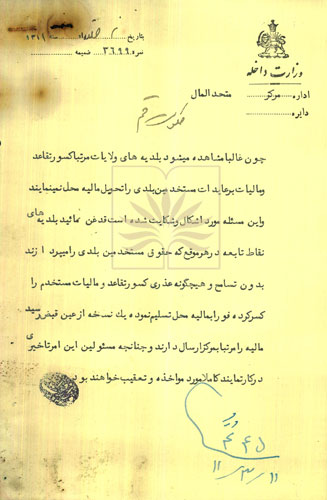 وزارت داخله
اداره مرکز
دایره
بتاریخ
نمره ۳۶۹۹ ضمیمه
متحدالمال
حکومت قم
چون غالبا مشاهده میشود بلدیه های ولایات مرتبا کسور تقاعد
و مالیات بر عایدات مستخدمین بلدی را تحویل مالیه محل نمینمایند
و این مسئله مورد اشکال و شکایت شده است قدغن نمائید بلدیه های
نقاط تابعه در هر موقع که حقوق مستخدمین بلدی را میپردازند
بدون تسامح و هیچگونه عذری کسور تقاعد و مالیات مستخدم را
کسر کرده فورا بمالیه محل تسلیم نموده یك نسخه از عین قبض رسید
مالیه را مرتبا بمرکز ارسال دارند و چنانچه مسئولین این امر تاخیری
در کار نمایند کاملا مورد مواخذه و تعقیب خواهند بود